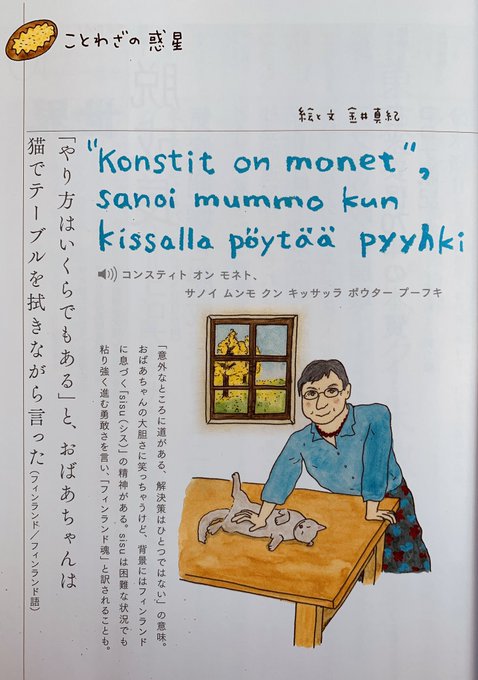 ことわざの惑星
絵と文 金井真紀
"Konstit on monet",
sanoi mummo kun
kissalla pöytää pyyhki
コンスティト オン モネト、
サノイ ムンモ クン キッサッラ ポウター プーフキ
「やり方はいくらでもある」と、おばあちゃんは
猫でテーブルを拭きながら言った(フィンランド/フィンランド語)
「意外なところに道がある、解決策はひとつではない」の意味。
おばあちゃんの大胆さに笑っちゃうけど、背景にはフィンランド
に息づく「sisu(シス)」の精神がある。sisuは困難な状況でも
粘り強く進む勇敢さを言い、「フィンランド魂」と訳されることも。